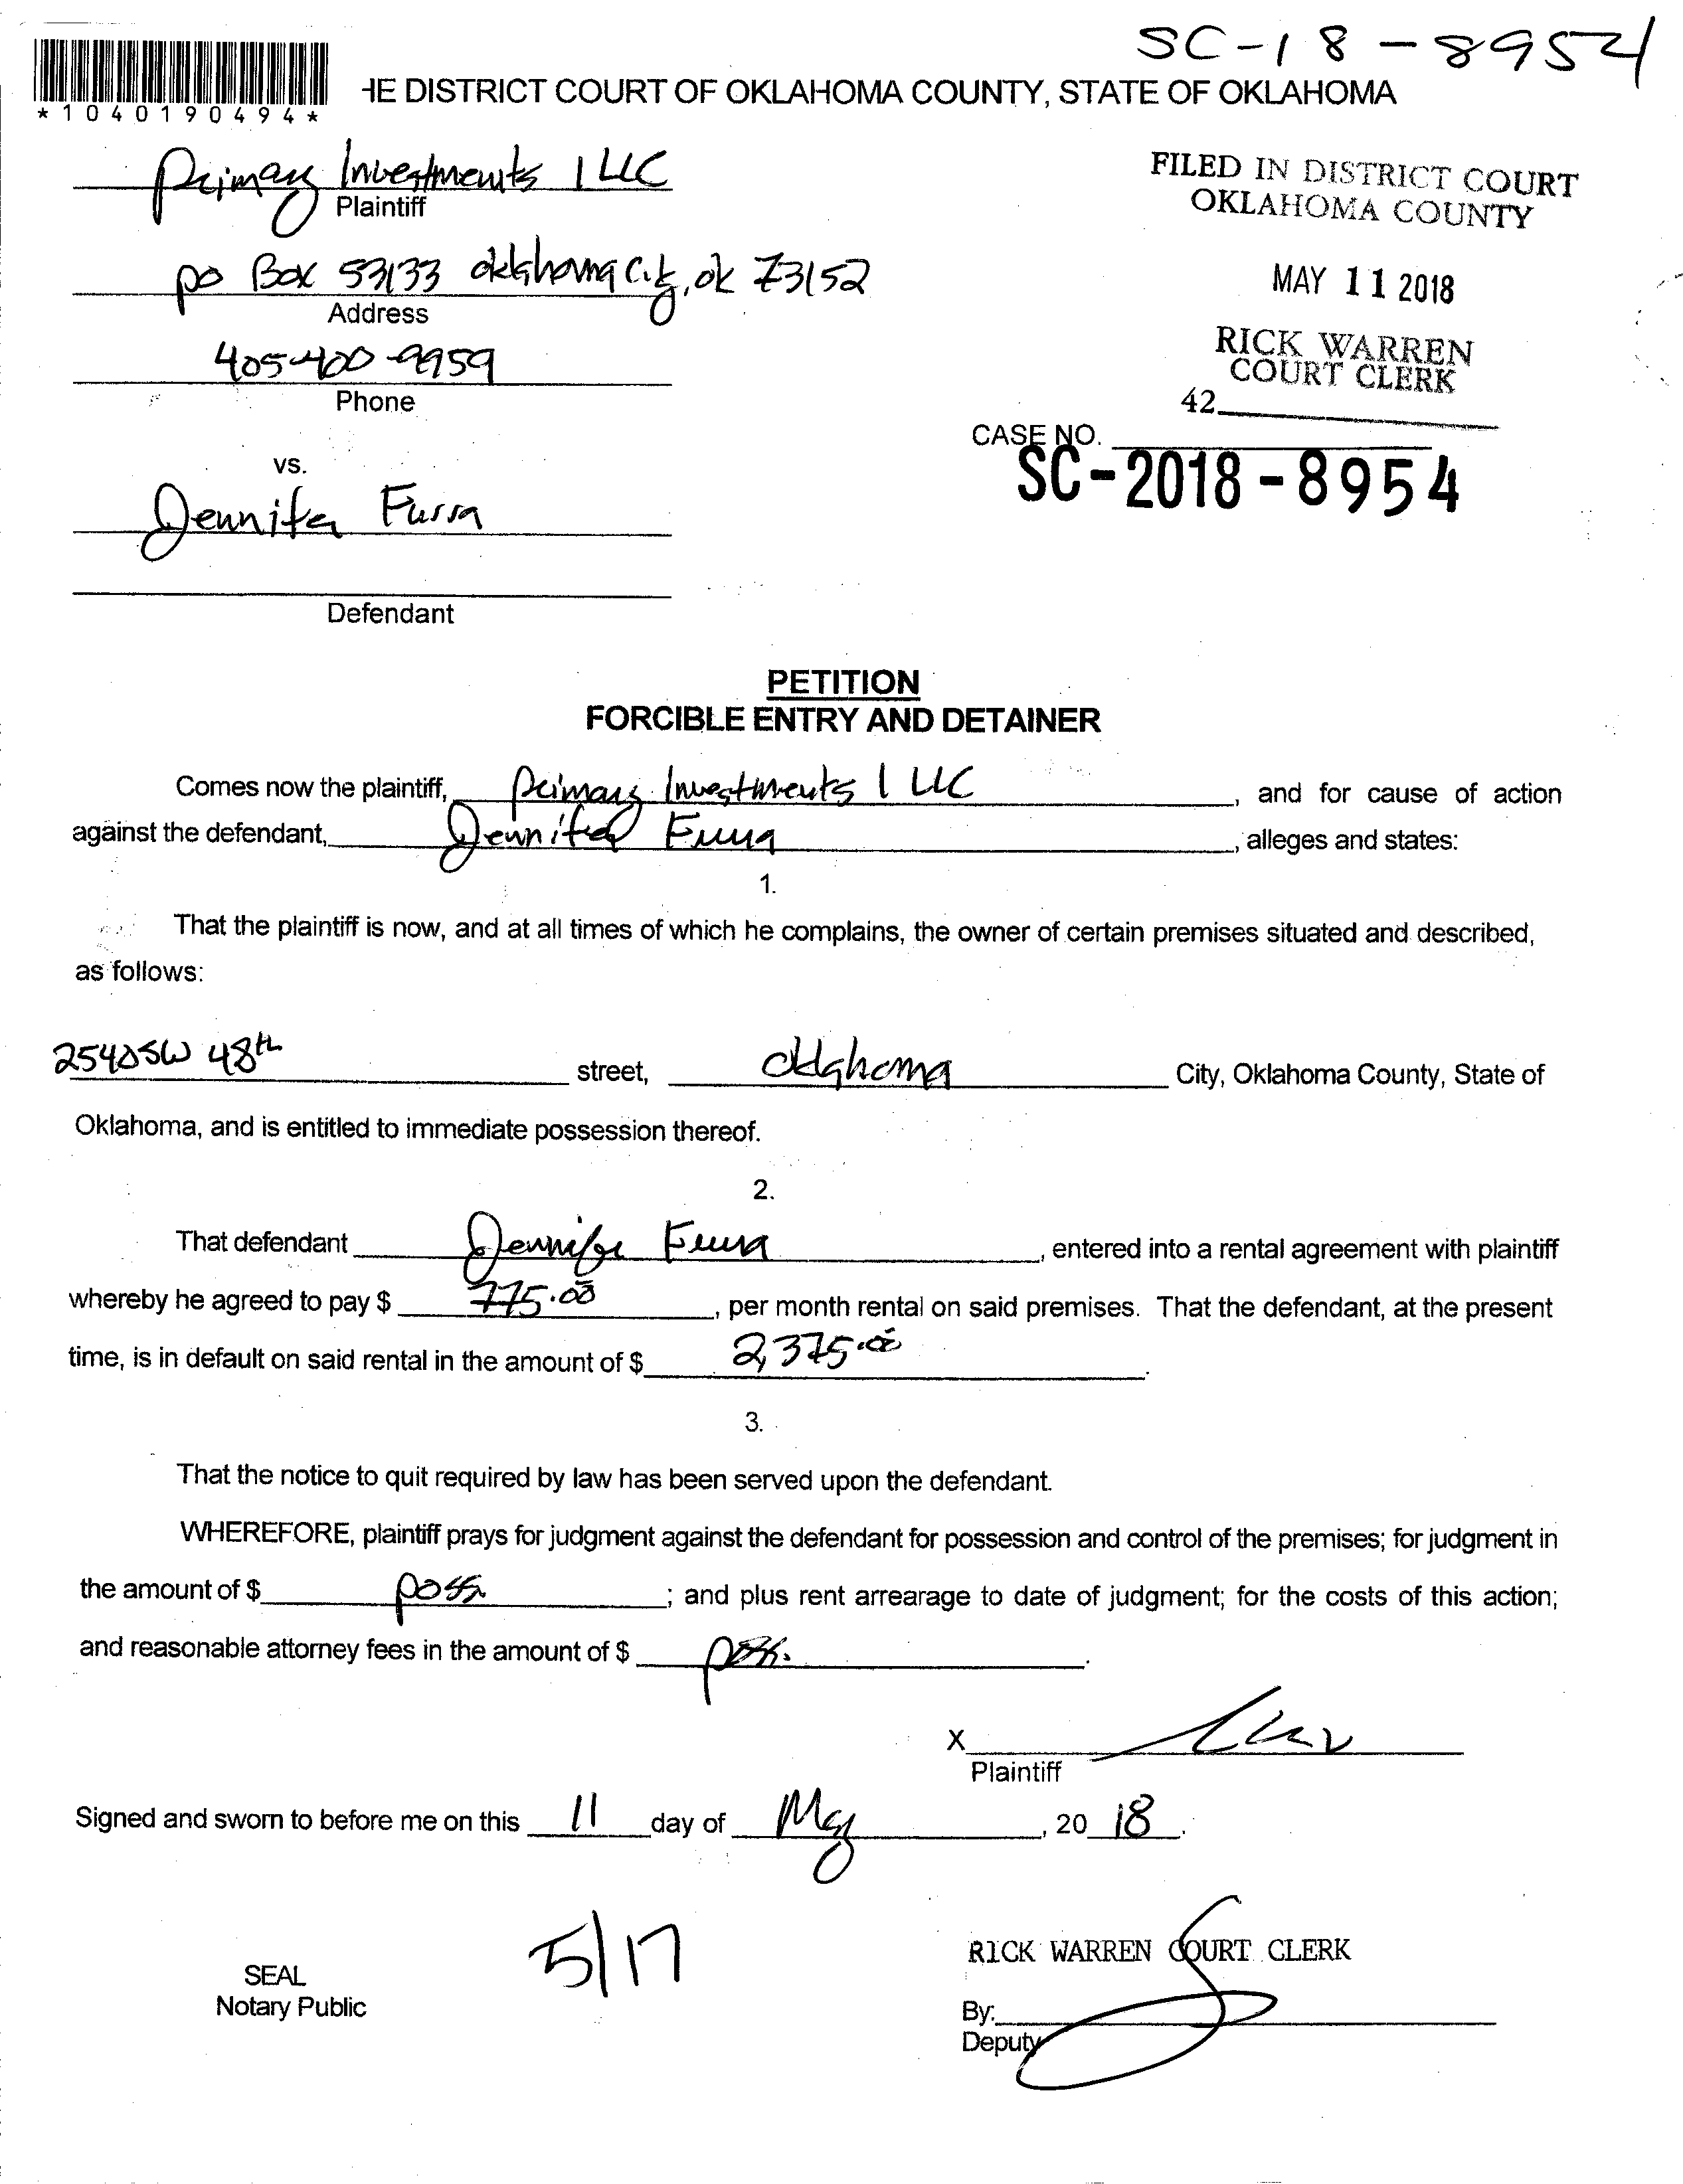 SC-18-8954
*1040190494*
HE DISTRICT COURT OF OKLAHOMA COUNTY, STATE OF OKLAHOMA
Primary Investments 1 LLC
Plaintiff
FILED IN DISTRICT COURT
OKLAHOMA COUNTY
po Box 53133 oklahoma city, ok 73152
Address
MAY 11 2018
405-400-9959
Phone
RICK WARREN
COURT CLERK
42
CASE NO.
SC-2018-8954
vs.
Jennifer
Defendant
PETITION
FORCIBLE ENTRY AND DETAINER
Comes now the plaintiff, Primary Investments 1 LLC, and for cause of action
against the defendant, Jennifer, alleges and states:
1.
That the plaintiff is now, and at all times of which he complains, the owner of certain premises situated and described,
as follows:
2540 SW 48th street, oklahoma City, Oklahoma County, State of
Oklahoma, and is entitled to immediate possession thereof.
2.
That defendant Jennifer, entered into a rental agreement with plaintiff
whereby he agreed to pay $ 775.00, per month rental on said premises. That the defendant, at the present
time, is in default on said rental in the amount of $ 2,375.00.
3.
That the notice to quit required by law has been served upon the defendant.
WHEREFORE, plaintiff prays for judgment against the defendant for possession and control of the premises; for judgment in
the amount of $ poss; and plus rent arrearage to date of judgment; for the costs of this action;
and reasonable attorney fees in the amount of $ poss.
X
Plaintiff
Signed and sworn to before me on this 11 day of May, 20 18.
5/17
SEAL
Notary Public
RICK WARREN COURT CLERK
By:
Deputy